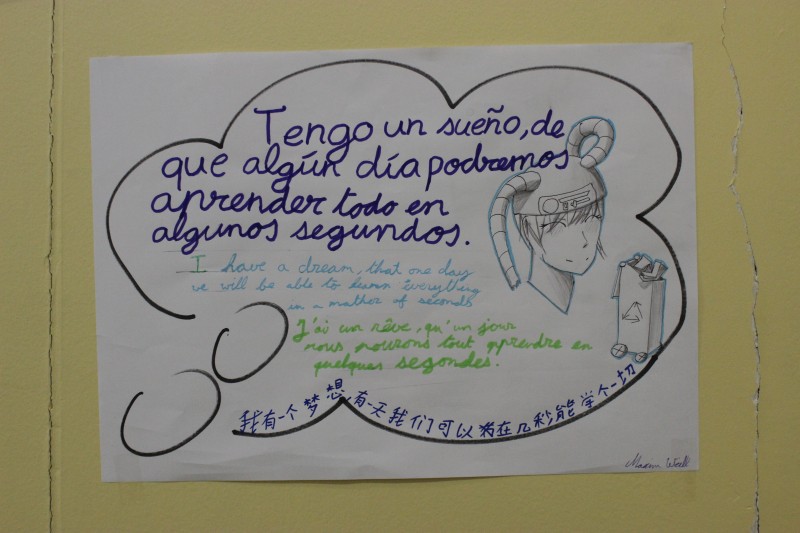 Tengo un sueño, de
que algún día podremos
aprender todo en
algunos segundos.
I have a dream, that one day
we will be able to learn everything
in a mather of seconds
J'ai un rêve, qu'un jour
nous pourons tout aprendre en
quelques segondes.
我有一个梦想,有一天我们可以在几秒能学个一切
Maxim